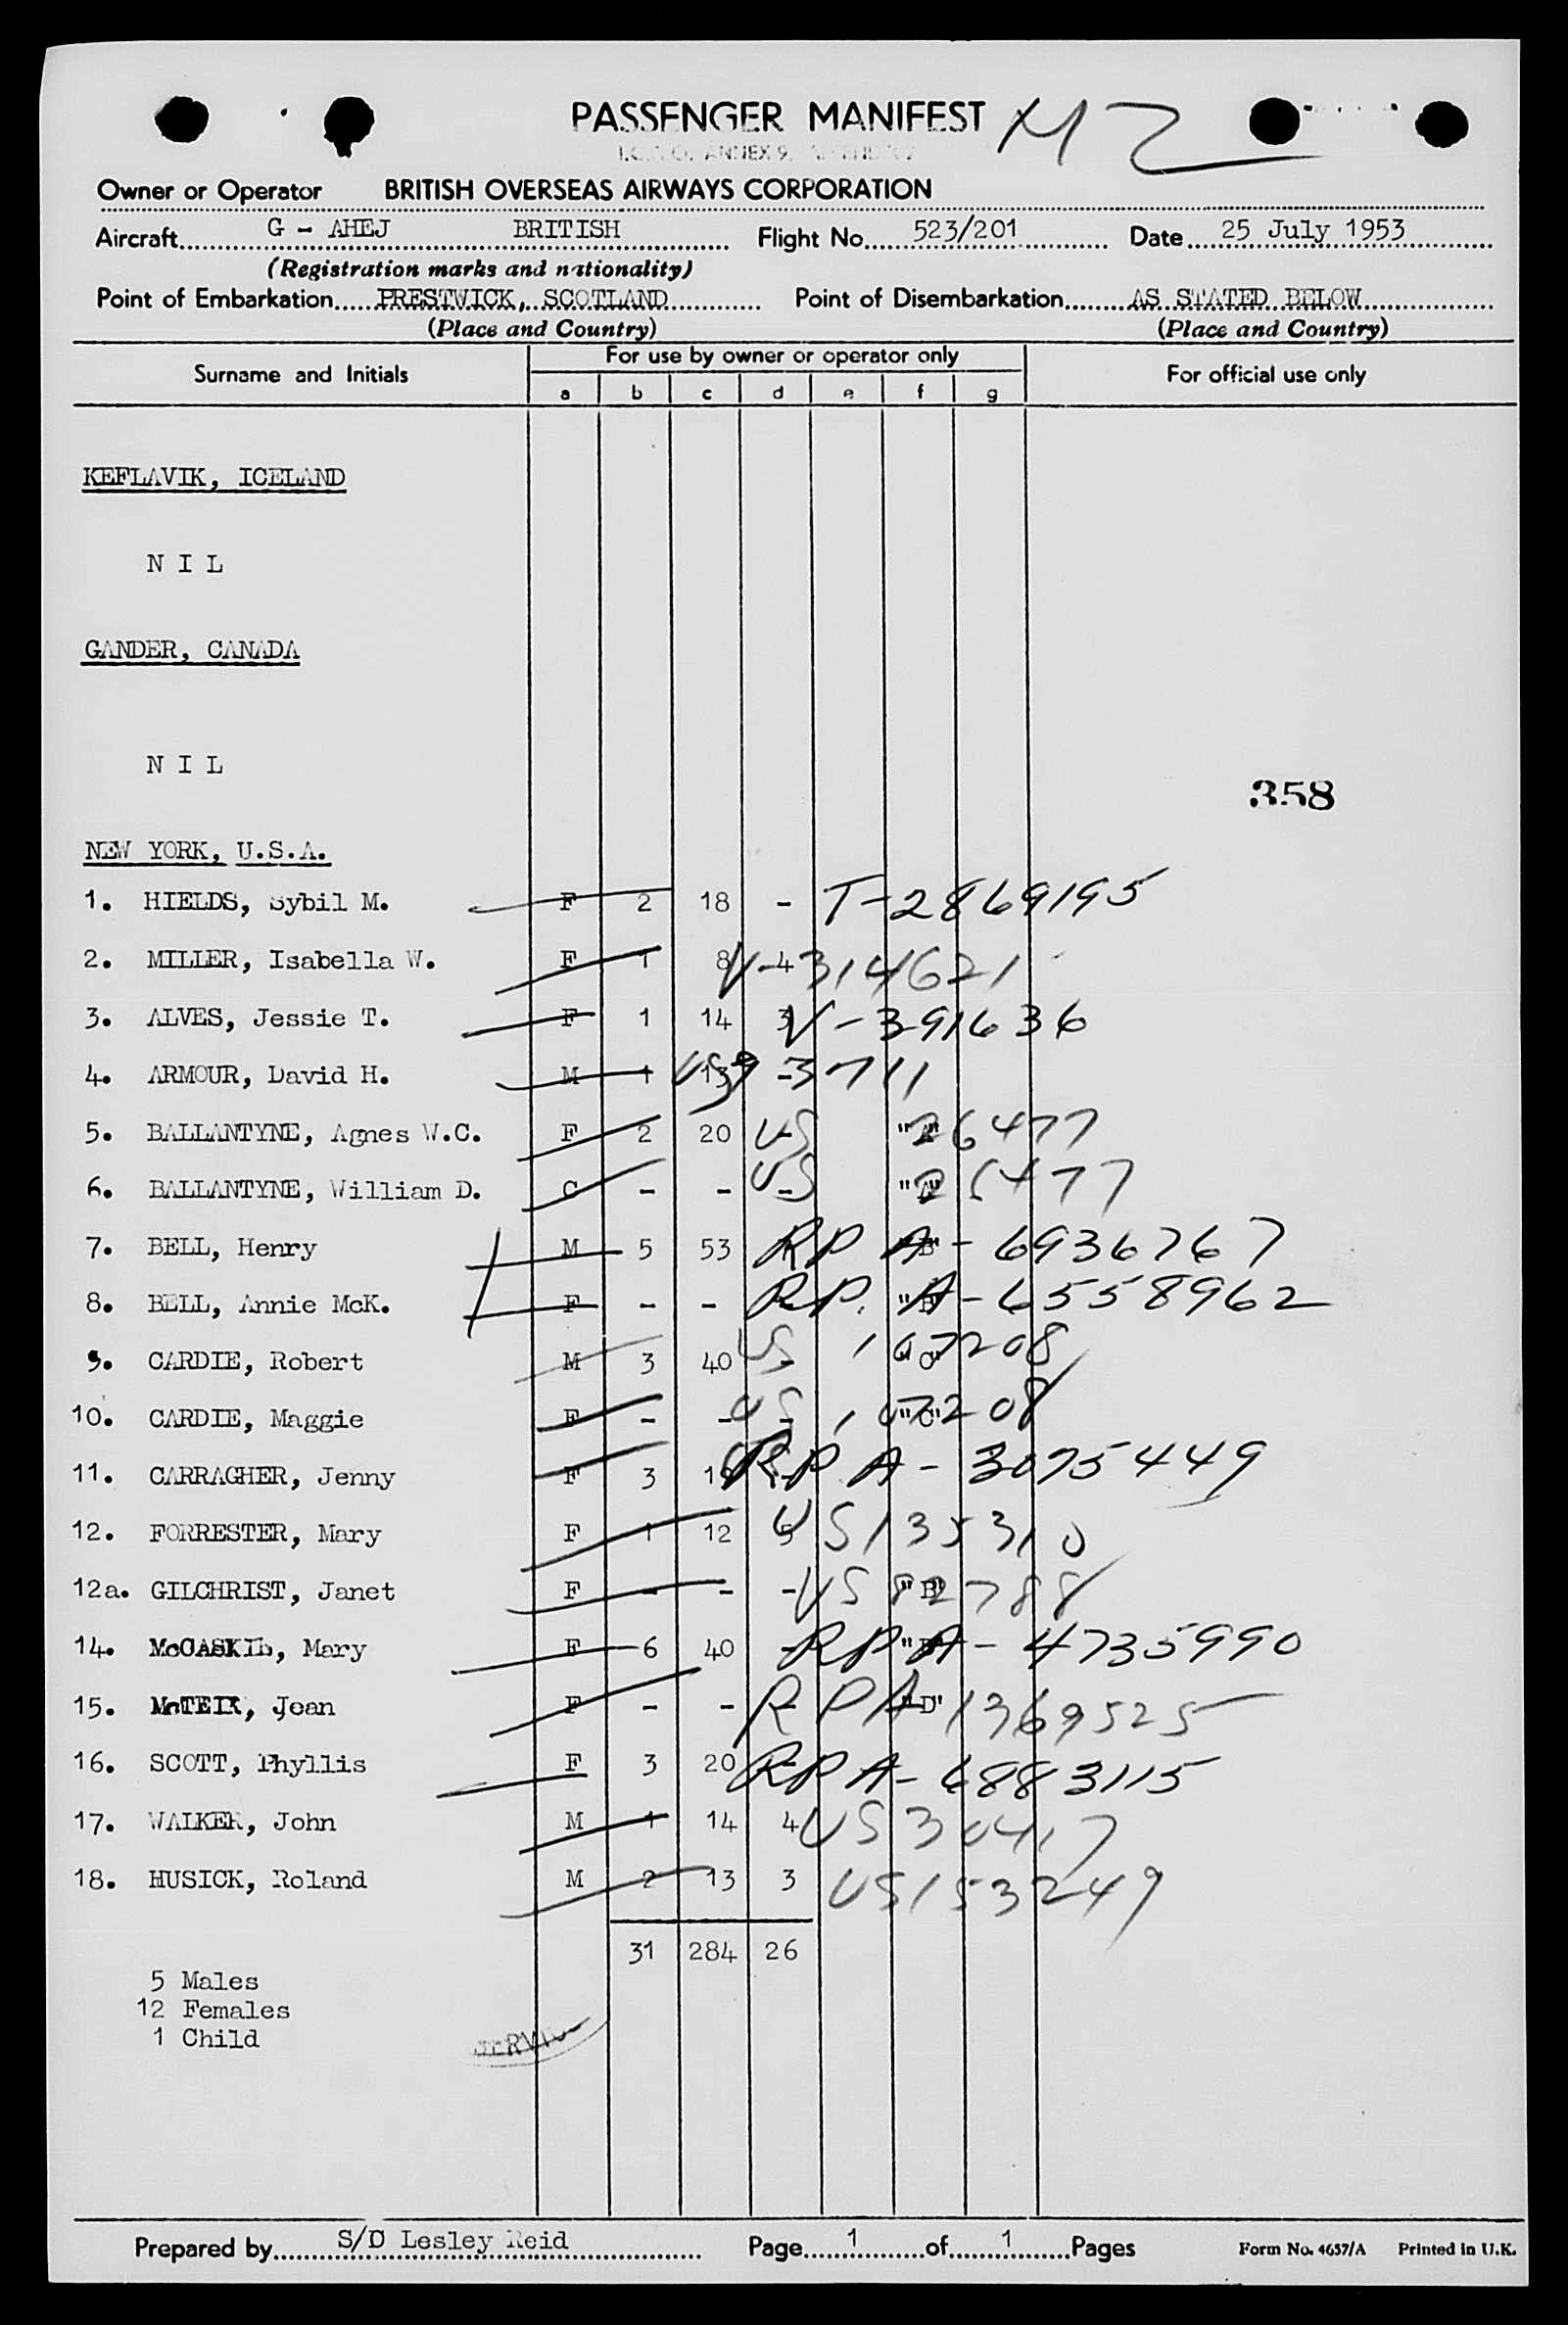 PASSENGER MANIFEST
ANNEX 9,
Owner or Operator BRITISH OVERSEAS AIRWAYS CORPORATION
Aircraft G - AHEJ BRITISH Flight No. 523/201 Date 25 July 1953
(Registration marks and nationality)
Point of Embarkation PRESTWICK, SCOTLAND Point of Disembarkation AS STATED BELOW
(Place and Country) (Place and Country)
Surname and Initials For use by owner or operator only For official use only
a b c d e f g
KEFLAVIK, ICELAND
N I L
GANDER, CANADA
N I L
358
NEW YORK, U.S.A.
1. HIELDS, Sybil M. F 2 18 - T-2869195
2. MILLER, Isabella W. F 1 8 4 V-314621
3. ALVES, Jessie T. F 1 14 3 V-391636
4. ARMOUR, David H. M 1 13 - US93711
5. BALLANTYNE, Agnes W.C. F 2 20 - "A" US 26477
6. BALLANTYNE, William D. C - - - "A" US 26477
7. BELL, Henry M 5 53 "B" RP A-6936767
8. BELL, Annie McK. F - - "B" RP. A-6558962
9. CARDIE, Robert M 3 40 - "C" US 107208
10. CARDIE, Maggie F - - - "C" US 107208
11. CARRAGHER, Jenny F 3 RP A-3075449
12. FORRESTER, Mary F 1 12 5 US135310
12a. GILCHRIST, Janet F - - - "B" US 82788
14. McCASKIL, Mary F 6 40 - RP A-4735990
15. McTEIR, Jean F - - - "D" RPA-1369525
16. SCOTT, Phyllis F 3 20 - RP A-6883115
17. WALKER, John M 1 14 4 US 30417
18. HUSICK, Roland M 2 13 3 US153249
31 284 26
5 Males
12 Females
1 Child
Prepared by S/O Lesley Reid Page 1 of 1 Pages Form No. 4657/A Printed in U.K.